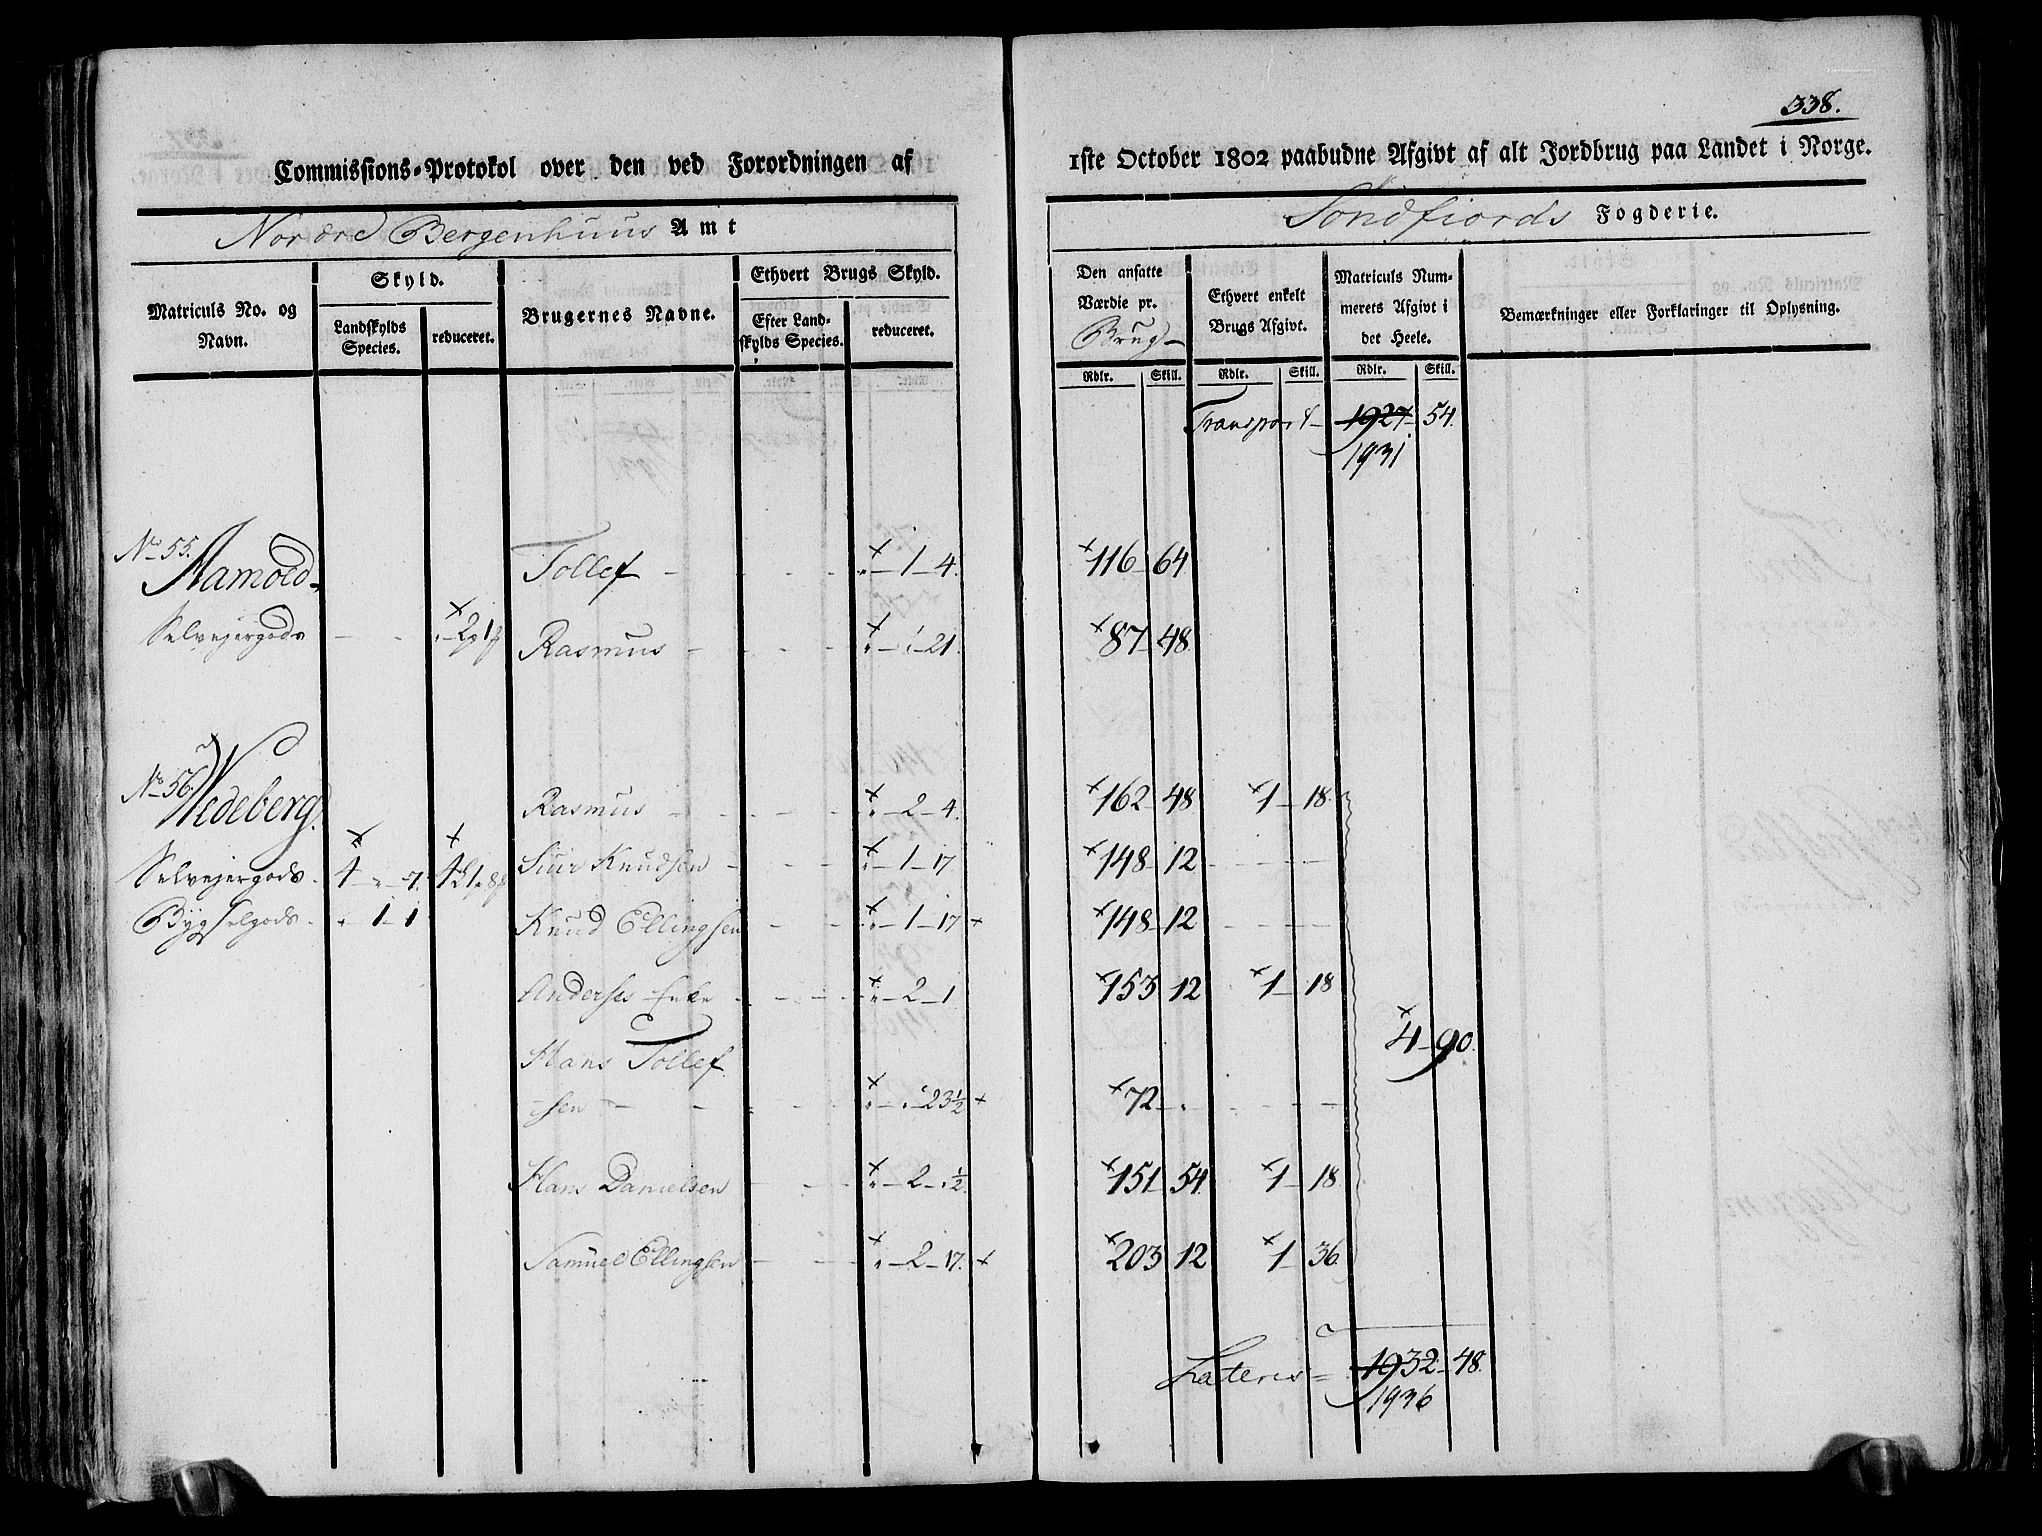 338.
Commissions-Protokol over den ved Forordningen af 1ste October 1802 paabudne Afgivt af alt Jordbrug paa Landet i Norge.
Nordre Bergenhuus Amt
Søndfiords Fogderie.
Matriculs No. og Navn.
Skyld.
Landskylds Species.
reduceret.
Brugernes Navne.
Ethvert Brugs Skyld.
Efter Landskylds Species.
reduceret.
Den ansatte Værdie pr. Brug
Ethvert enkelt Brugs Afgivt.
Matriculs Nummerets Afgivt i det Heele.
Bemærkninger eller Forklaringer til Oplysning.
Rdlr. Skill. Rdlr. Skill. Rdlr. Skill.
Transport 1927 54.
1931
No 55. Aamold
Tollef - 1 - 4. 116 64
Selvejergods
Rasmus 21. 87 48
No 56. Wedeberg.
Rasmus 2 - 4. 162 48 1 - 18.
Selvejergods
Siur Knudsen 1 - 17 148 12
Bygselgods 1 - 1
Knud Ellingsen 1 - 17 148 12
Anderses Enke 2 - 1 153 12 1 - 18
4 - 90.
Hans Tollef
sen 23½ 72
Hans Danielsen 2 - ½ 151 54. 1 - 18.
Samuel Ellingsen 2 - 17. 203 12 1 36.
Lateris 1932 - 48.
1936